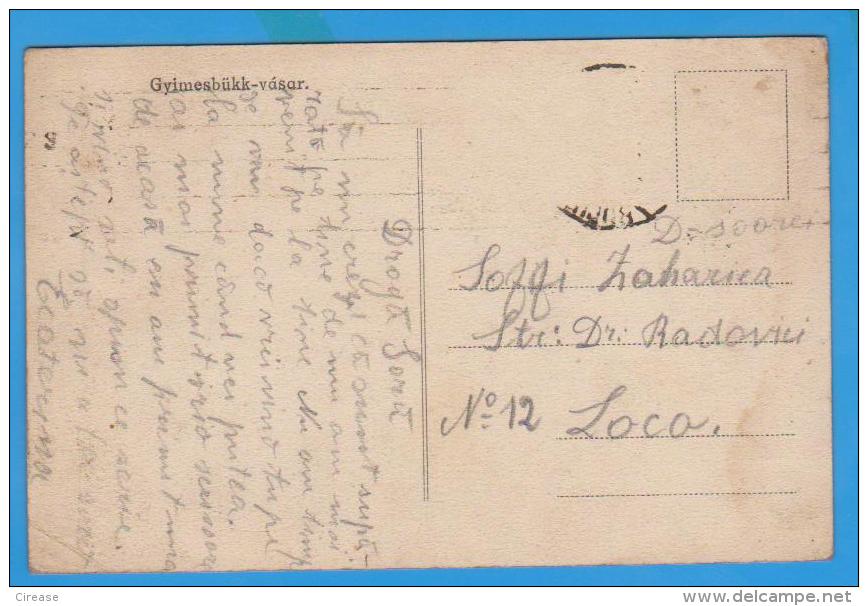 Gyimesbükk-vásar.
Dragă Soră
Să nu crezi că sunt supă-
rată pe tine de nu am mai
venit pe la tine Nu am timp
se vin dacă vrei vino tu pe
la mine când vei putea.
ai mai primit vrio scrisoare
de acasă eu am primit una
și vino să-ți spun ce scrie.
Te aștept să nu
Ecaterina
D-șoarei
Soffi Zaharica
Str: Dr: Radovici
No 12 Loco.
Cirease
delcampe.net